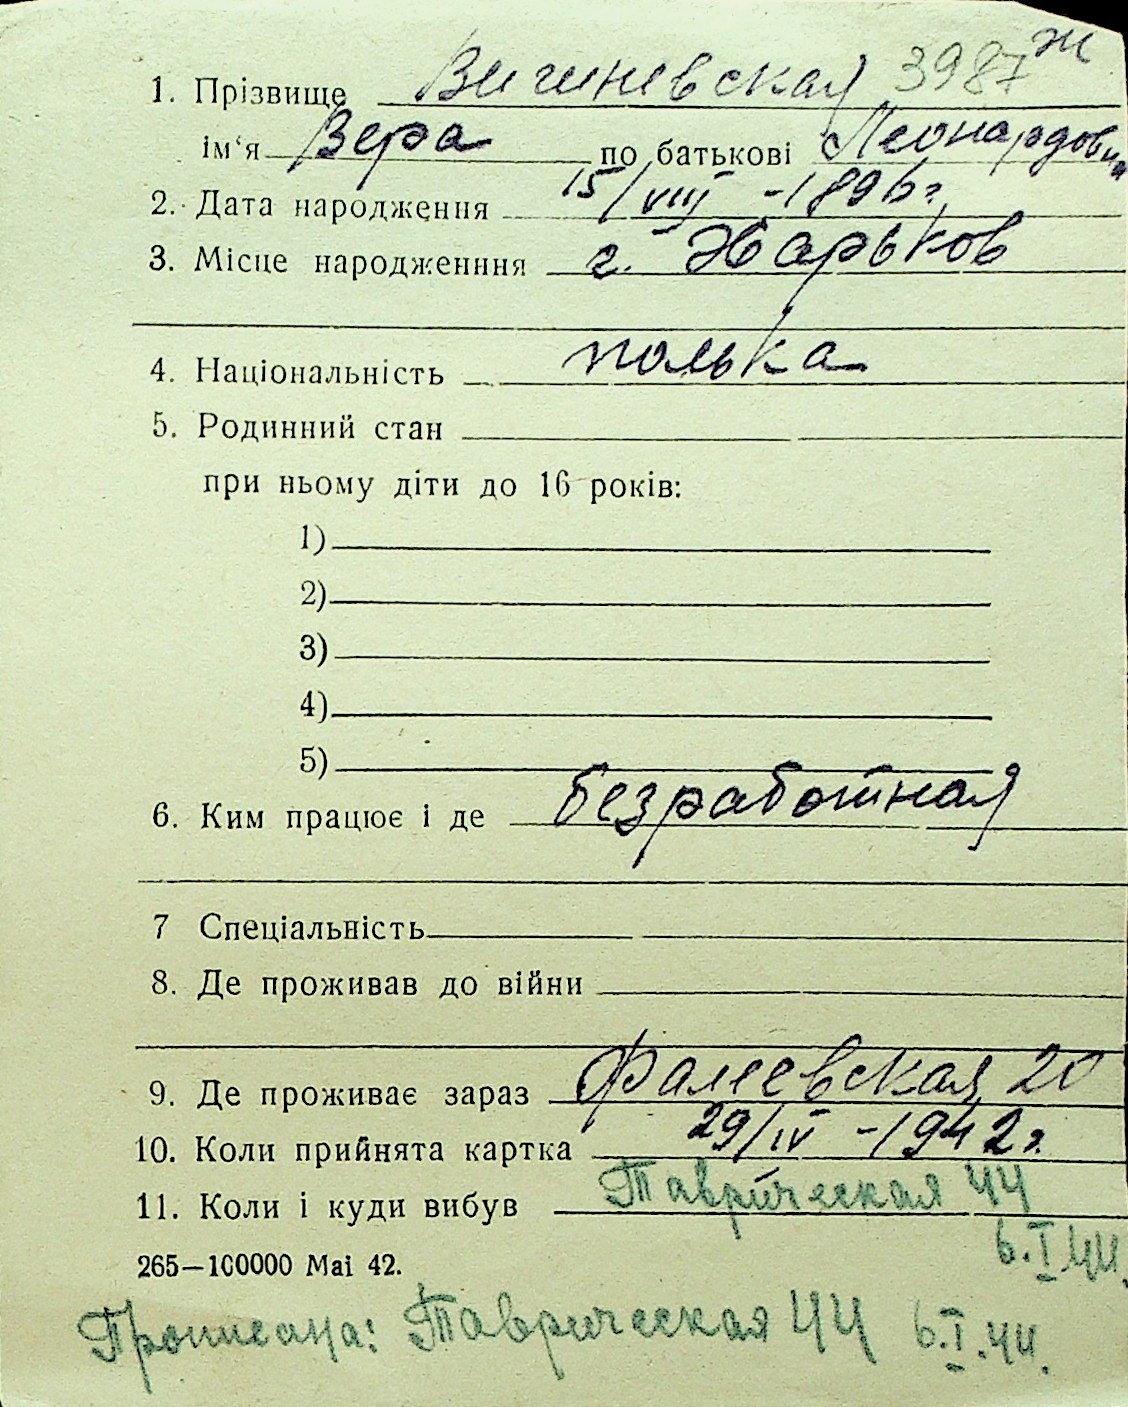 3987 ж
1. Прізвище Вишневская
ім‘я Вера по батькові Леонардовн
2. Дата народження 15/VIII - 1896 г.
3. Місце народженння г. Харьков
4. Національність полька
5. Родинний стан
при ньому діти до 16 років:
1)
2)
3)
4)
5)
6. Ким працює і де безработная
7 Спеціальність
8. Де проживав до війни
9. Де проживає зараз Фалеевская 20
10. Коли прийнята картка 29/IV - 1942 г.
11. Коли і куди вибув Таврическая 44
6.I.44.
265—100000 Mai 42.
Прописана: Таврическая 44 6.I.44.